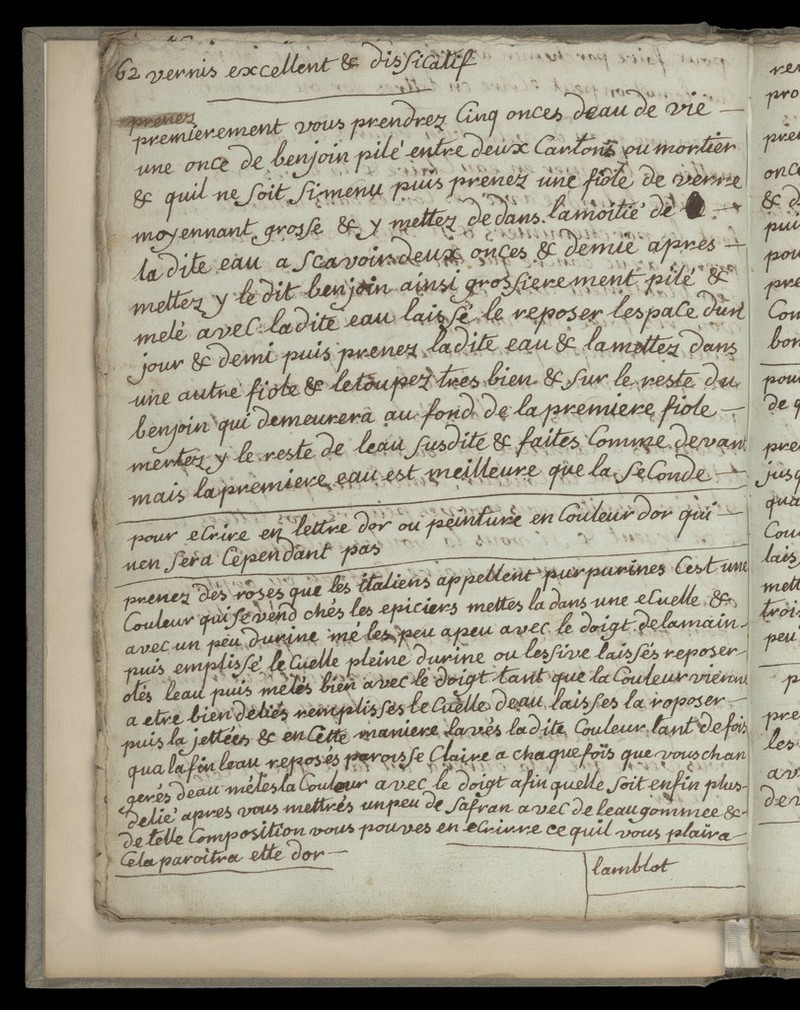 62 vernis excellent & dissicatif
prenez
premierement vous prendrez Cinq onces deau de vie —
une once de benjoin pilé entre deux Cartons ou mortier
& quil ne soit si menu puis prenez une fiole de verre
moyennant grosse & y mettez dedans lamoitié de
la dite eau a scavoir deux onces & demie apres —
mettez y le dit benjoin ainsi grossierement pilé &
melé avec ladite eau laissé le reposer lespace dun
jour & demi puis prenez ladite eau & lamettez dans
une autre fiole & letoupez tres bien & sur le reste du
benjoin qui demeurera au fond de lapremiere fiole —
mettez y le reste de leau susdite & faites Comme devant
mais lapremiere eau est meilleure que la seConde —
pour eCrire en lettre dor ou peinture en Couleur dor qui —
nen sera Cependant pas
prenez des roses que les italiens appellent purpurines Cest une
Couleur qui se vend chés les epiciers mettes la dans une eCuelle &
avec un peu durine mé les peu apeu avec le doigt delamain-
puis emplissé leCuelle pleine durine ou lessive laissés reposer-
otés leau puis mélés bien avec le doigt tant que la Couleur vienne
a etre bien deliés remplisses leCuelle deau laisses la roposer —
puis la jettées & en Cette maniere lavés ladite Couleur tant de fois
qua lafin leau reposés paroisse Claire a chaque fois que vous chan
gerés deau mélesla Couleur avec le doigt afin quelle soit enfin plus-
delié apres vous mettrés unpeu de safran avec de leau gommee &-
de telle Composition vous pouves en eCrirre ce quil vous plaira —
Cela paroitra ette dor —
lamblot